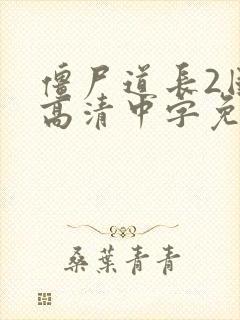 僵尸道长2国
高清中字免
桑葉青青